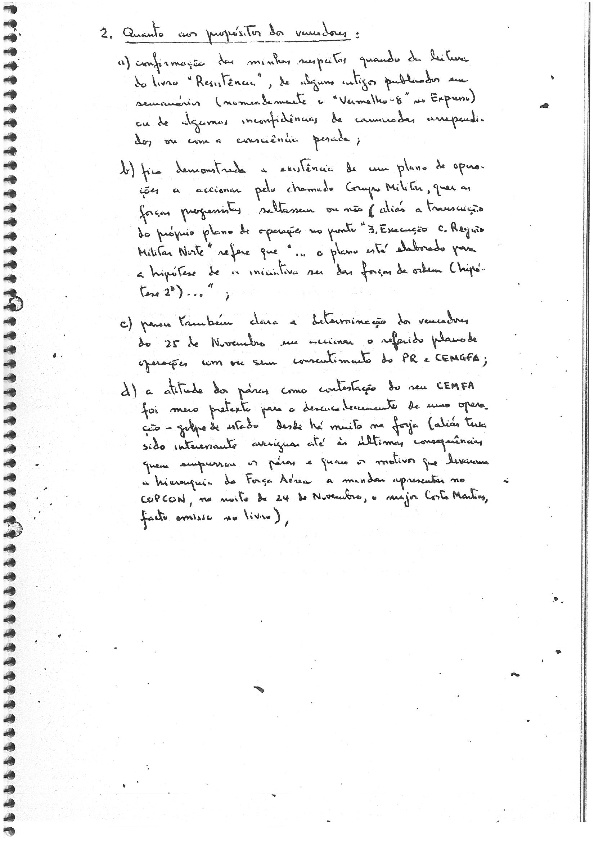 2. Quanto aos propósitos dos vencedores:
a) confirmação das minhas suspeitas quando da leitura
do livro "Resistência", de alguns artigos publicados em
semanários (nomeadamente o "Vermelho-8" no Expresso)
ou de algumas inconfidências de camaradas arrependi-
dos ou com a consciência pesada;
b) fica demonstrada a existência de um plano de opera-
ções a accionar pelo chamado Grupo Militar, quer as
forças progressistas saltassem ou não (aliás a transcrição
do próprio plano de operações no ponto "3. Execução C. Região
Militar Norte" refere que "... o plano está elaborado para
a hipótese de " iniciativa ser das forças da ordem (hipó-
tese 2ª)..." ;
c) parece também clara a determinação dos vencedores
do 25 de Novembro em accionar o referido plano de
operações com ou sem consentimento do PR e CEMGFA;
d) a atitude dos páras como contestação do seu CEMFA
foi mero pretexto para o desencadeamento de uma opera-
ção - golpe de estado desde há muito na forja (aliás teria
sido interessante averiguar até às últimas consequências
quem empurrou os páras e quais os motivos que levaram
a hierarquia da Força Aérea a mandar apresentar no
COPCON, na noite de 24 de Novembro, o major Costa Martins,
facto omisso no livro),